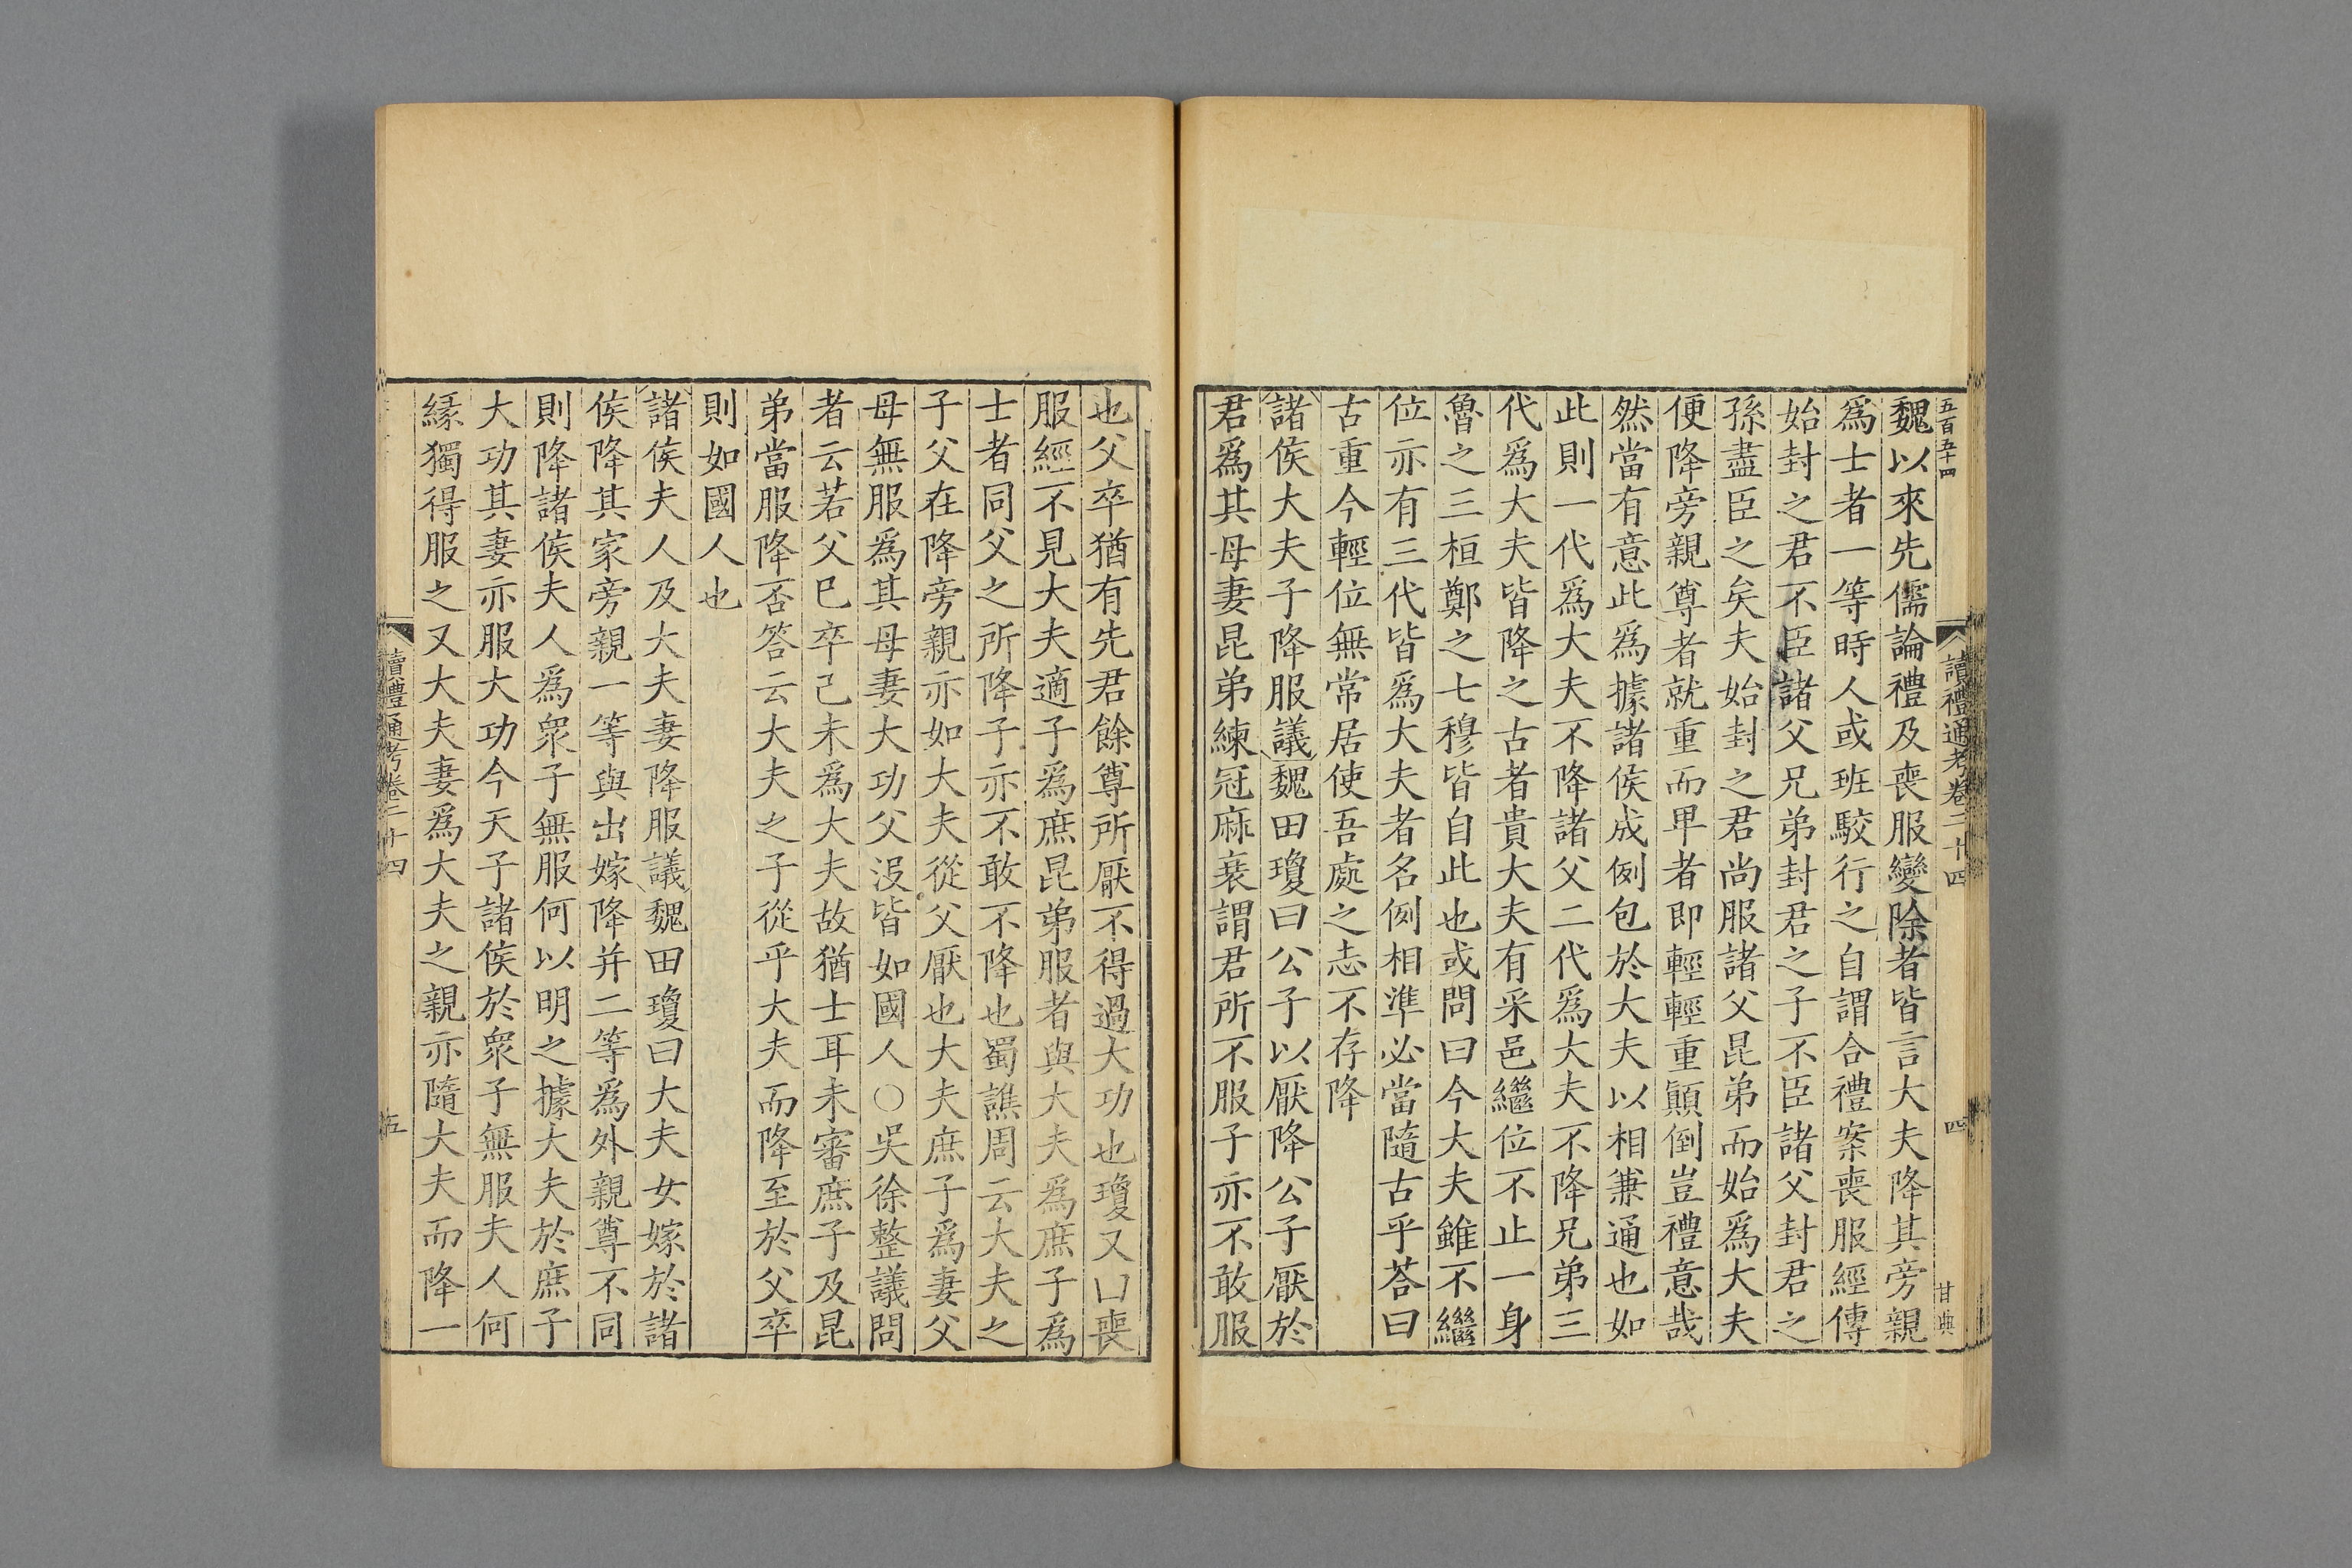 五百五十四
讀禮通考卷二十四
四
甘典
魏以來先儒論禮及喪服變除者皆言大夫降其旁親
爲士者一等時人或班駮行之自謂合禮案喪服經傳
始封之君不臣諸父兄弟封君之子不臣諸父封君之
孫盡臣之矣夫始封之君尚服諸父昆弟而始爲大夫
便降旁親尊者就重而𤰞者即輕輕重顛倒豈禮意哉
然當有意此爲據諸侯成例包於大夫以相兼通也如
此則一代爲大夫不降諸父二代爲大夫不降兄弟三
代爲大夫皆降之古者貴大夫有采邑繼位不止一身
魯之三桓鄭之七穆皆自此也或問曰今大夫雖不繼
位亦有三代皆爲大夫者名例相準必當隨古乎荅曰
古重今輕位無常居使吾處之志不存降
諸侯大夫子降服議魏田瓊曰公子以厭降公子厭於
君爲其母妻昆弟練冠麻衰謂君所不服子亦不敢服
也父卒猶有先君餘尊所厭不得過大功也瓊又曰喪
服經不見大夫適子爲庶昆弟服者與大夫爲庶子爲
士者同父之所降子亦不敢不降也蜀譙周云大夫之
子父在降旁親亦如大夫從父厭也大夫庶子爲妻父
母無服爲其母妻大功父沒皆如國人○吳徐整議問
者云若父已卒己未爲大夫故猶士耳未審庶子及昆
弟當服降否答云大夫之子從乎大夫而降至於父卒
則如國人也
諸侯夫人及大夫妻降服議魏田瓊曰大夫女嫁於諸
侯降其家旁親一等與出嫁降并二等爲外親尊不同
則降諸侯夫人爲衆子無服何以明之據大夫於庶子
大功其妻亦服大功今天子諸侯於衆子無服夫人何
緣獨得服之又大夫妻爲大夫之親亦隨大夫而降一
讀禮通考卷二十四
五